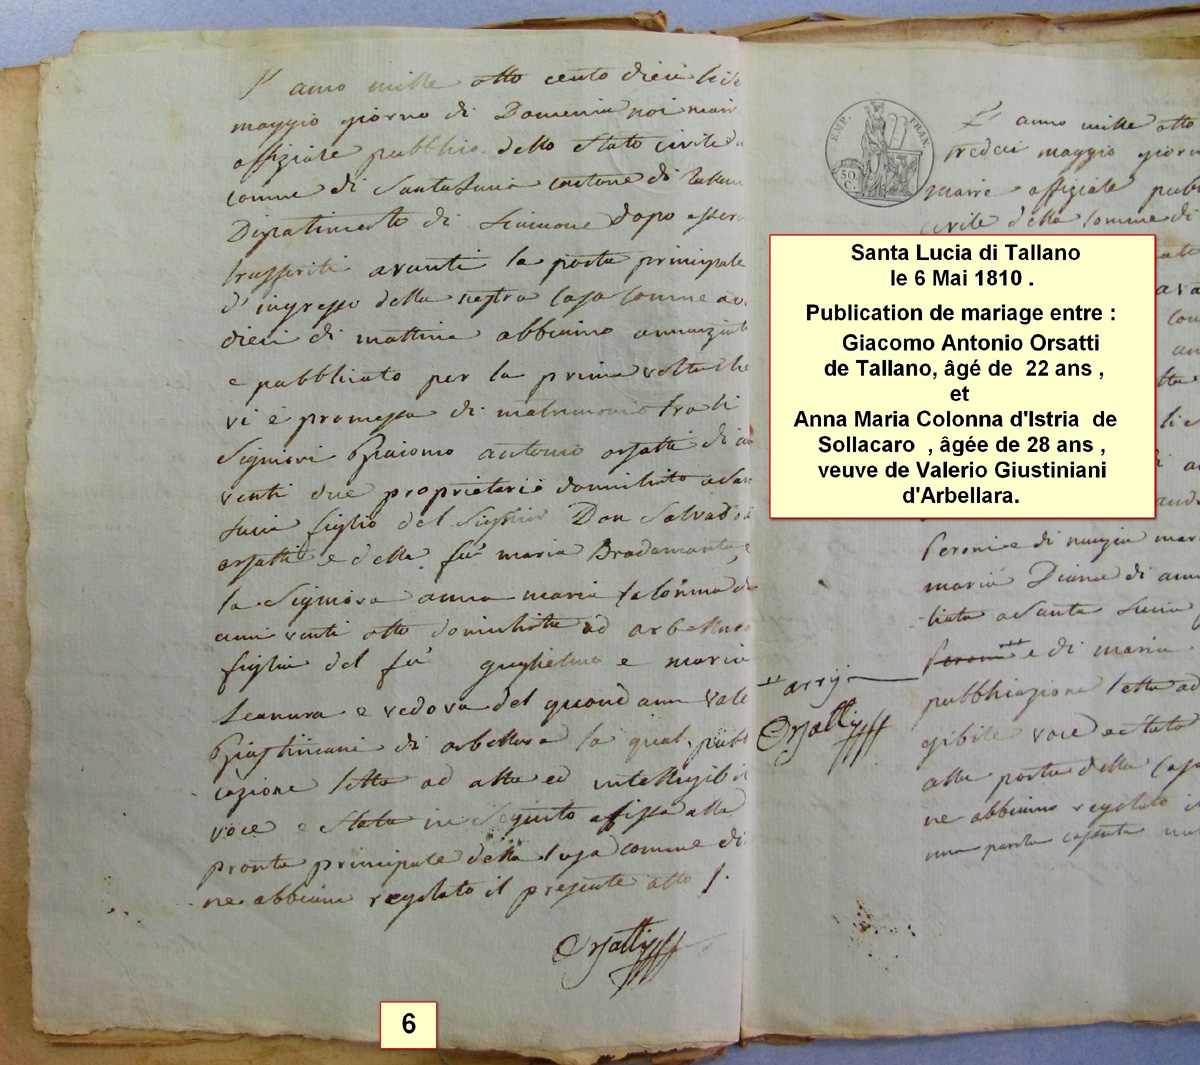 L'anno mille otto cento dieci li sei
maggio giorno di Domenica noi mair
offiziale pubblico dello stato civile d
comune di Santa Lucia cantone di Tallan
Dipartimento di Liamone dopo esserci
trasferiti avanti la porta principale
d'ingresso della nostra Casa Comune a
dieci di mattina abbiamo annunziato
e pubblicato per la prima volta che
vi è promessa di matrimonio tra li
Signori Giacomo antonio orsatti di an
venti due proprietario domiciliato a San
Lucia figlio del Signor Don Salvado
orsatti e della fu maria Bradamanta, e
la Signora anna maria Colonna d
anni venti otto domiciliata ad arbellara
figlia del fu guglielmo e maria
Leanura e vedova del quondam Vale
Giustiniani di arbellara la qual pubb
cazione letta ad alta ed intelligibil
voce e stata in seguito affissa alla
pronta principale della Casa comune di
ne abbiamo regolato il presente atto /.
Orsatti
6
EMP. FRAN.
50
C.
L'anno mille otto
tredeci maggio giorn
maire offiziale pub
civile della Comune di
Santa Lucia di Tallano
le 6 Mai 1810 .
Publication de mariage entre :
Giacomo Antonio Orsatti
de Tallano, âgé de 22 ans ,
et
Anna Maria Colonna d'Istria de
Sollacaro , âgée de 28 ans ,
veuve de Valerio Giustiniani
d'Arbellara.
Peroni e di nunzia mar
maria Diana di ann
liata a Santa Lucia
Peroni e di maria
pubblicazione letta ad
gibile voce e stata
alla porta della Casa
ne abbiamo regolato i
una parola cassata
Orsatti